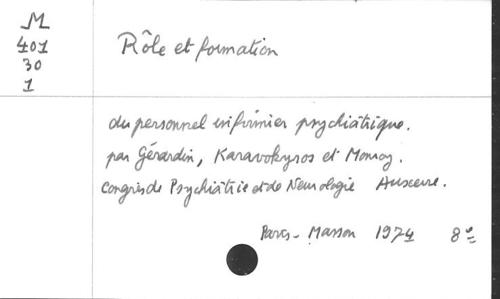 M
401
30
1
Rôle et formation
du personnel infirmier psychiâtrique.
par Gérardin, Karavokyros et Monroy.
Congrès de Psychiâtrie et de Neurologie Auxerre.
Paris - Masson 1974 8º